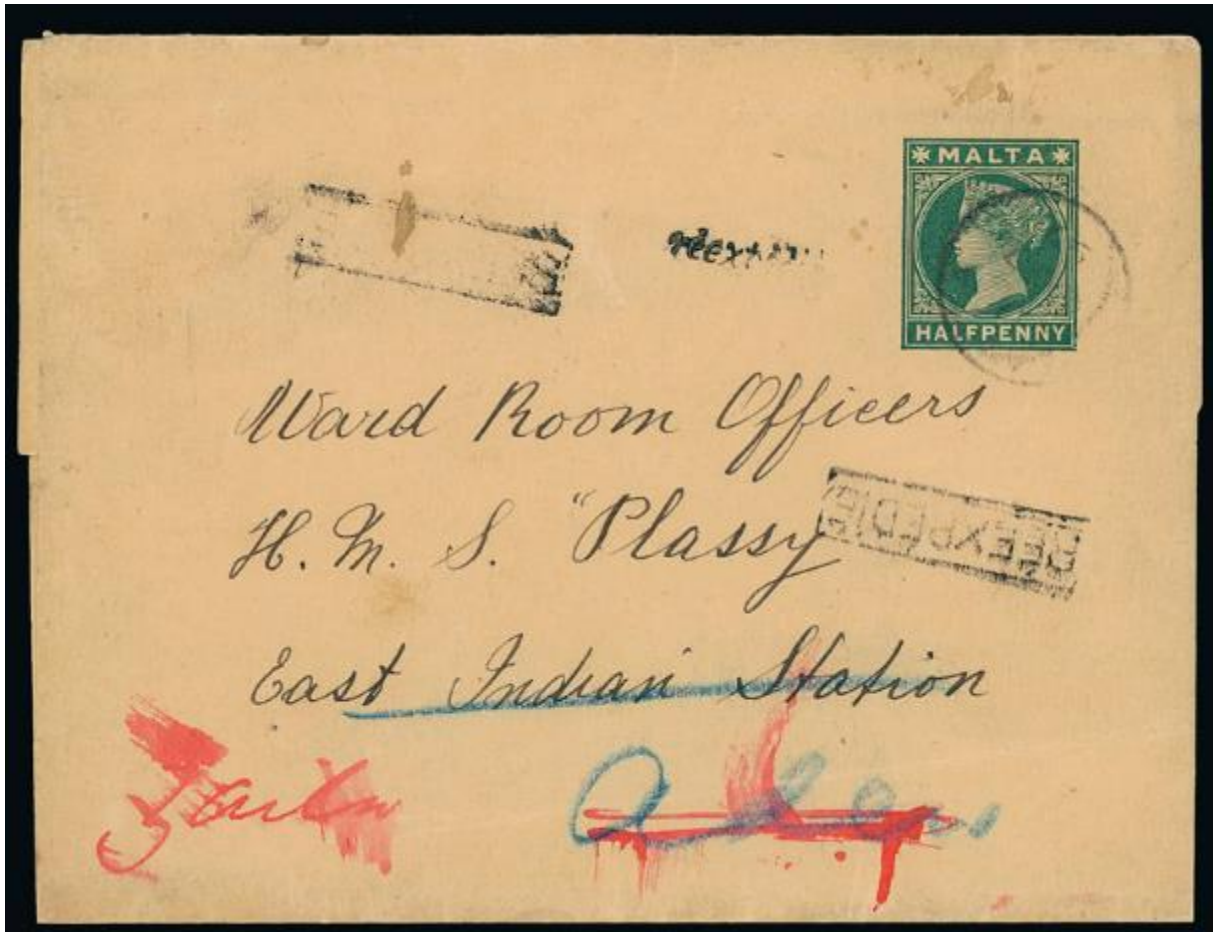 MALTA
HALFPENNY
Ward Room Officers
H. M. S. "Plassy
RÉEXPEDIE
East Indian Station
Aden